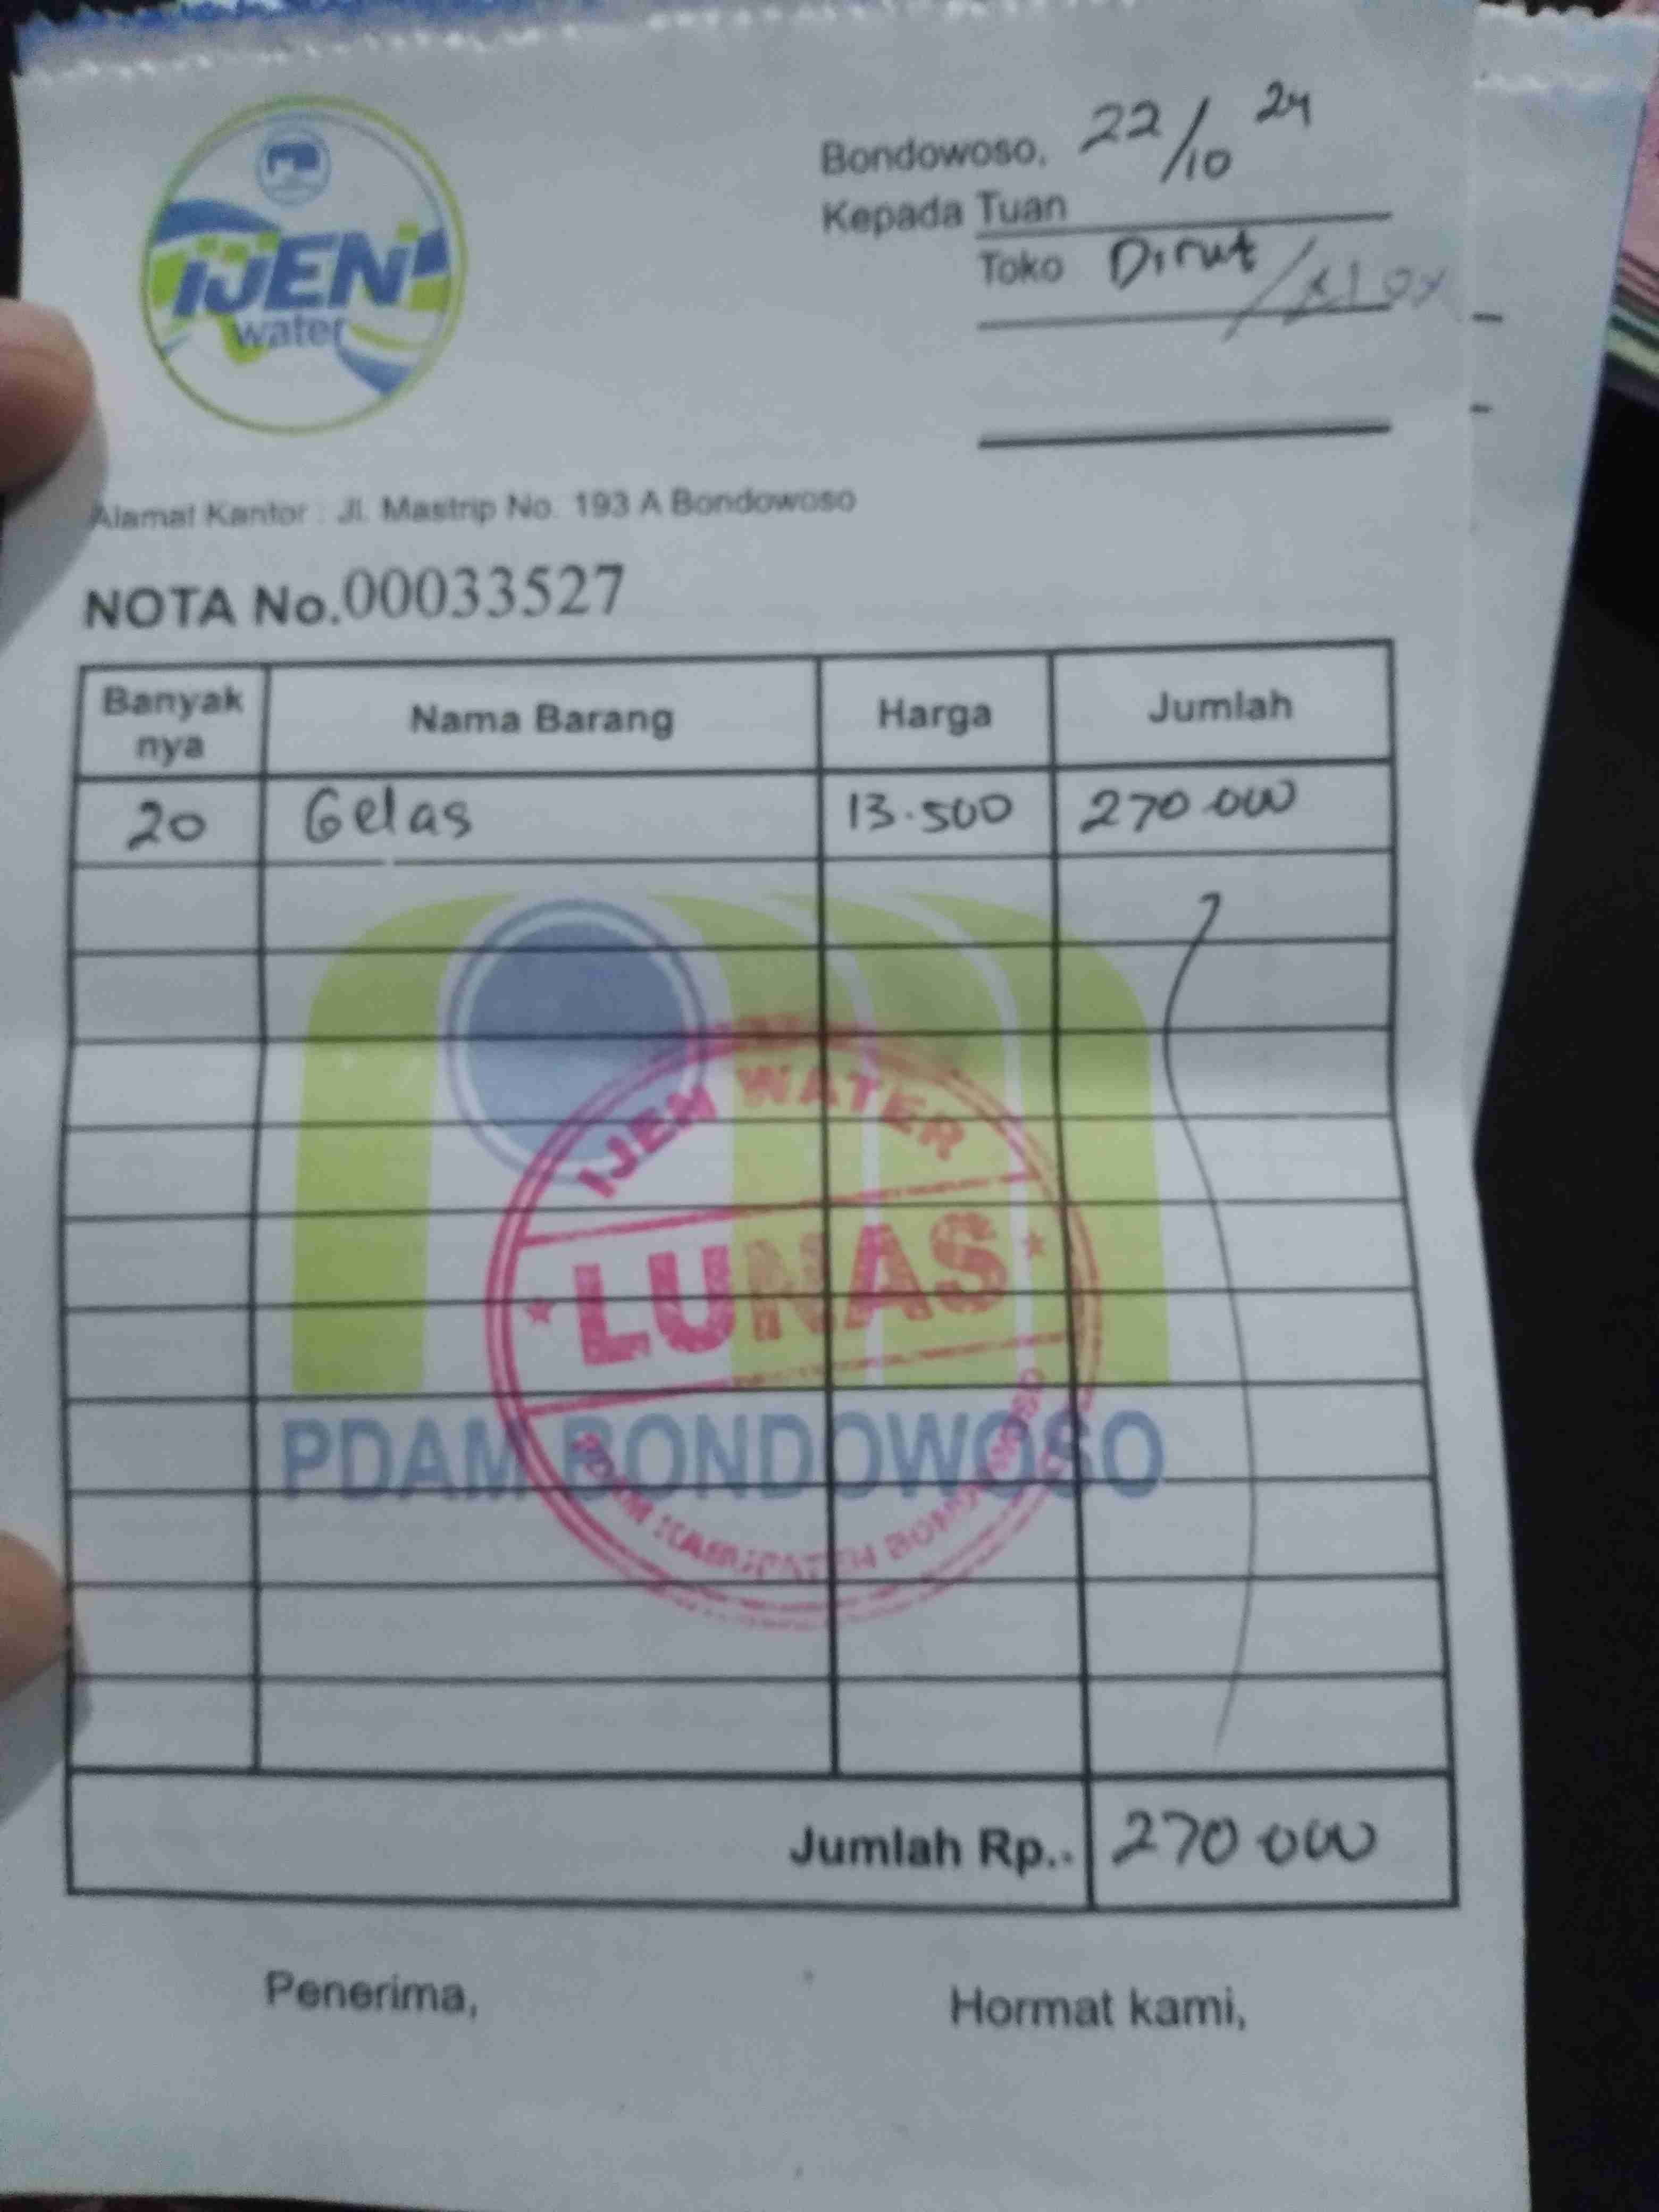 IJEN
water
Bondowoso, 22/10 24
Kepada Tuan
Toko Dirut /
Alamat Kantor : Jl. Mastrip No. 193 A Bondowoso
NOTA No.00033527
Banyak nya Nama Barang Harga Jumlah
20 Gelas 13.500 270.000
IJEN WATER
LUNAS
PDAM KABUPATEN BONDOWOSO
PDAM BONDOWOSO
Jumlah Rp.. 270 000
Penerima, Hormat kami,